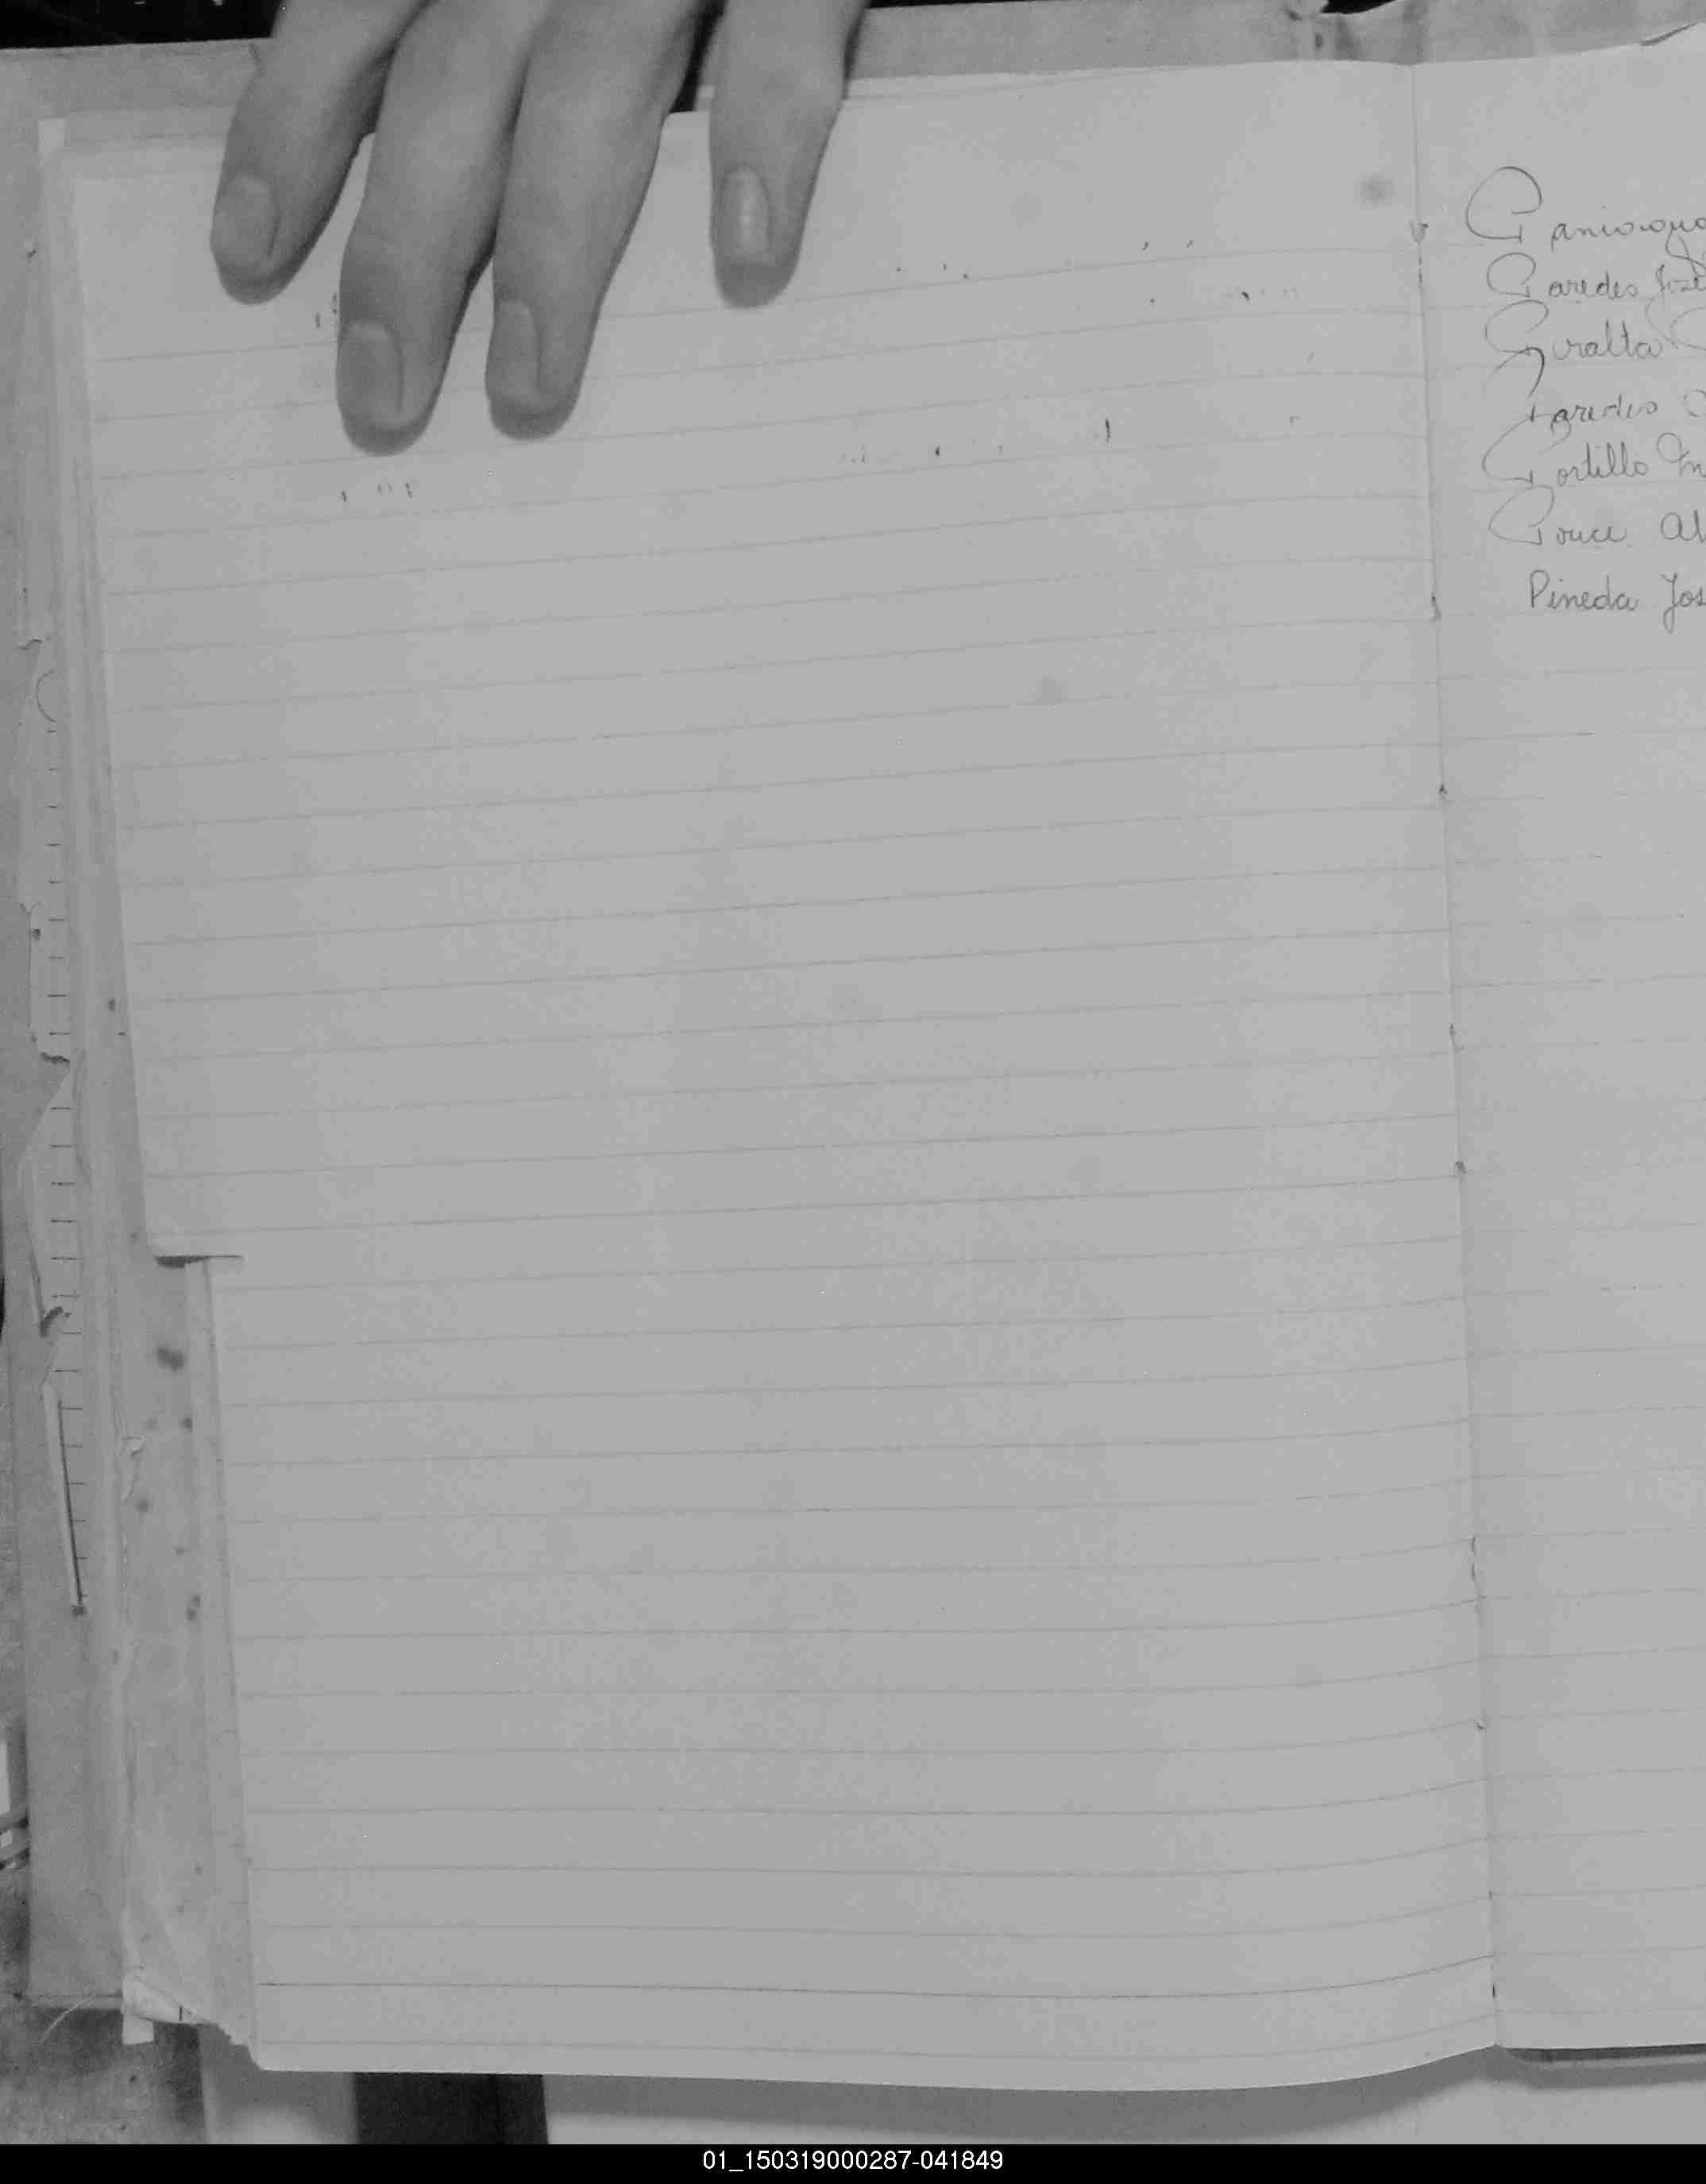 Paredes José
Peralta
Paredes
Portillo
Ponce Al
Pineda Jos
01_150319000287-041849